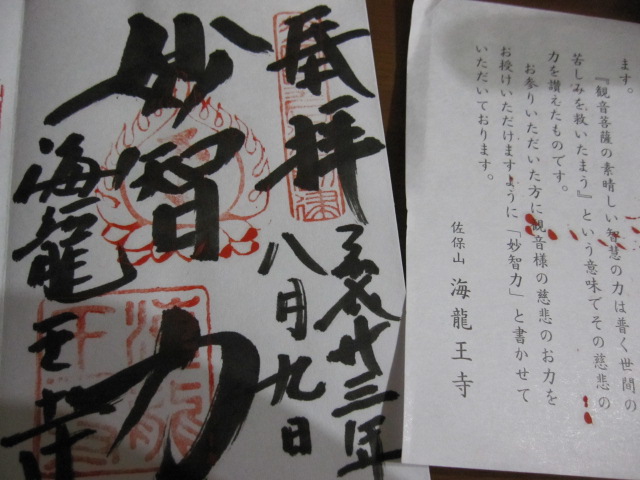 奉拝
平成廿三年
八月九日
妙智力
海龍王寺
ます。
『観音菩薩の素晴しい智慧の力は普く世間の
苦しみを救いたまう』という意味でその慈悲の
力を讃えたものです。
お参りいただいた方に観音様の慈悲のお力を
お授けいただけますように「妙智力」と書かせて
いただいております。
佐保山 海龍王寺